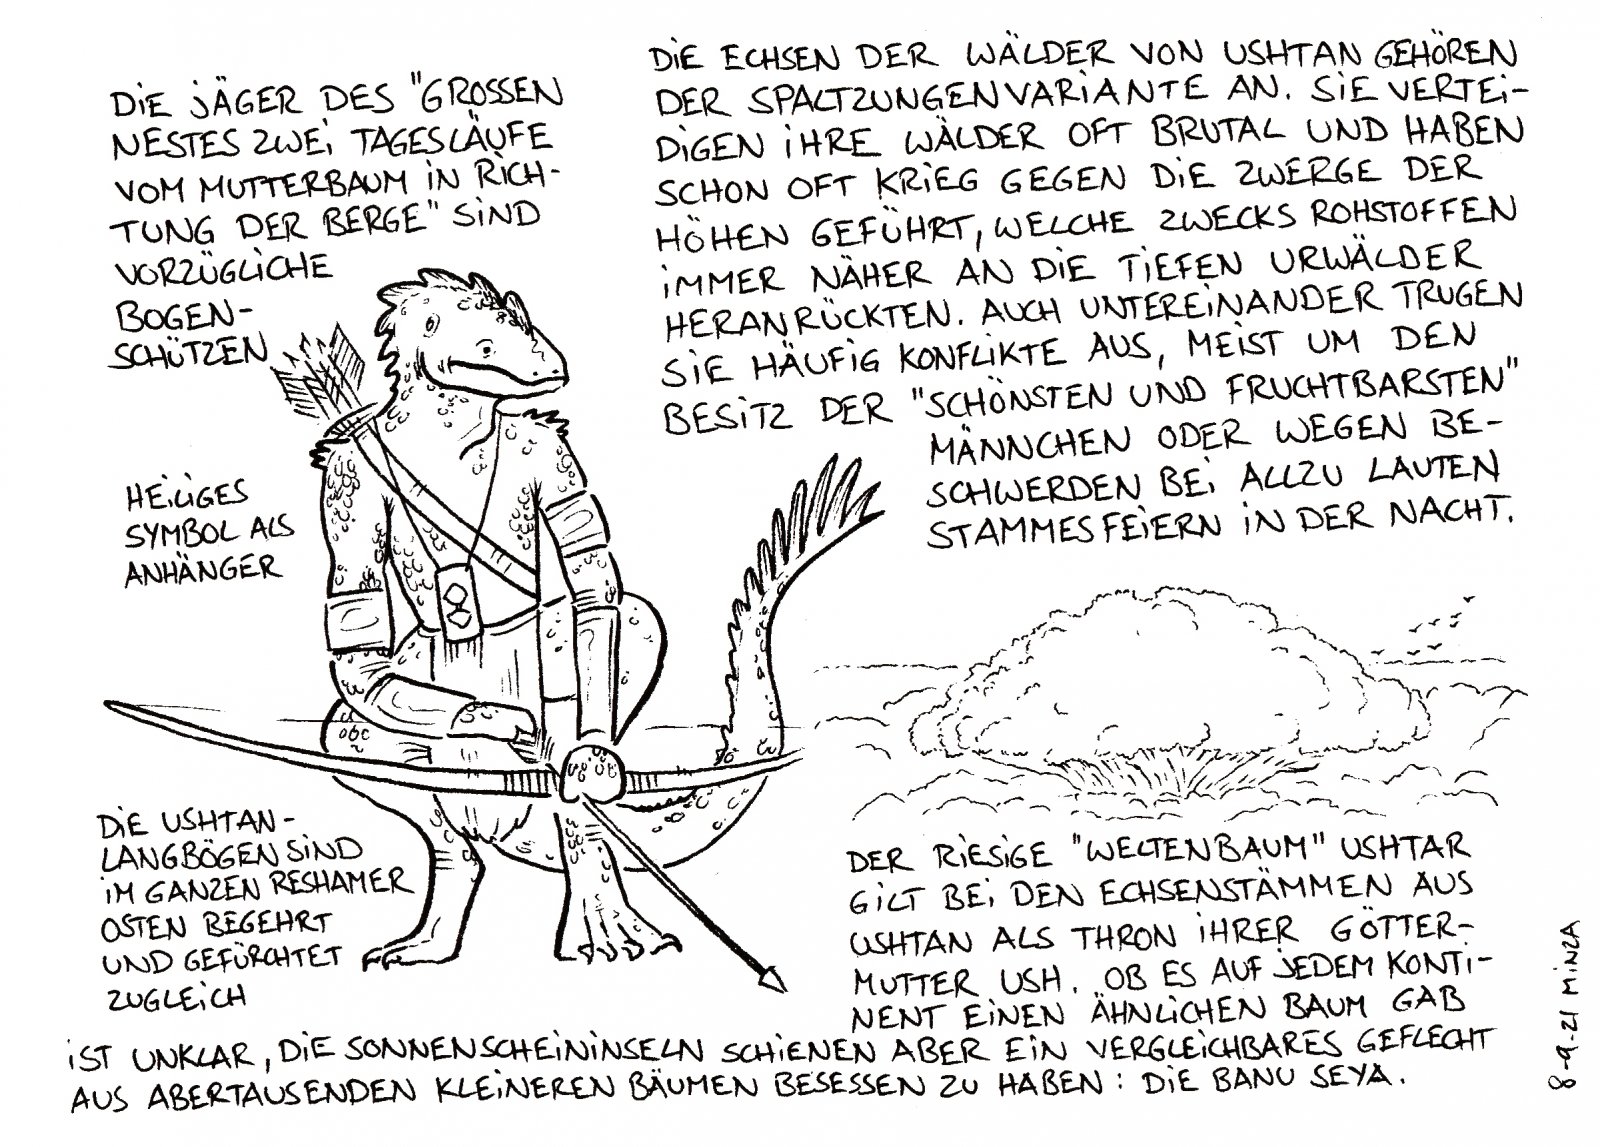 DIE JÄGER DES "GROSSEN
NESTES ZWEI TAGESLÄUFE
VOM MUTTERBAUM IN RICH-
TUNG DER BERGE" SIND
VORZÜGLICHE
BOGEN-
SCHÜTZEN
DIE ECHSEN DER WÄLDER VON USHTAN GEHÖREN
DER SPALTZUNGENVARIANTE AN. SIE VERTEI-
DIGEN IHRE WÄLDER OFT BRUTAL UND HABEN
SCHON OFT KRIEG GEGEN DIE ZWERGE DER
HÖHEN GEFÜHRT, WELCHE ZWECKS ROHSTOFFEN
IMMER NÄHER AN DIE TIEFEN URWÄLDER
HERANRÜCKTEN. AUCH UNTEREINANDER TRUGEN
SIE HÄUFIG KONFLIKTE AUS, MEIST UM DEN
BESITZ DER "SCHÖNSTEN UND FRUCHTBARSTEN"
MÄNNCHEN ODER WEGEN BE-
SCHWERDEN BEI ALLZU LAUTEN
STAMMESFEIERN IN DER NACHT.
HEILIGES
SYMBOL ALS
ANHÄNGER
DIE USHTAN-
LANGBÖGEN SIND
IM GANZEN RESHAMER
OSTEN BEGEHRT
UND GEFÜRCHTET
ZUGLEICH
DER RIESIGE "WELTENBAUM" USHTAR
GILT BEI DEN ECHSENSTÄMMEN AUS
USHTAN ALS THRON IHRER GÖTTER-
MUTTER USH. OB ES AUF JEDEM KONTI-
NENT EINEN ÄHNLICHEN BAUM GAB
IST UNKLAR, DIE SONNENSCHEININSELN SCHIENEN ABER EIN VERGLEICHBARES GEFLECHT
AUS ABERTAUSENDEN KLEINEREN BÄUMEN BESESSEN ZU HABEN: DIE BANU SEYA.
8-9-21 MINZA